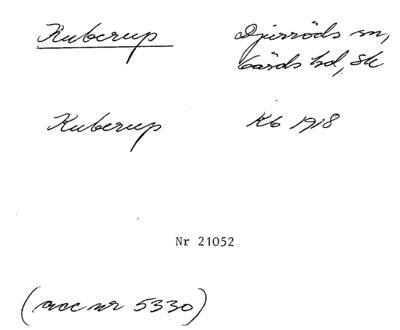 Kuberup Djurröds sn,
Gärds hd, Sk
Kuberup Kb 1918
Nr 21052
(acc nr 5330)